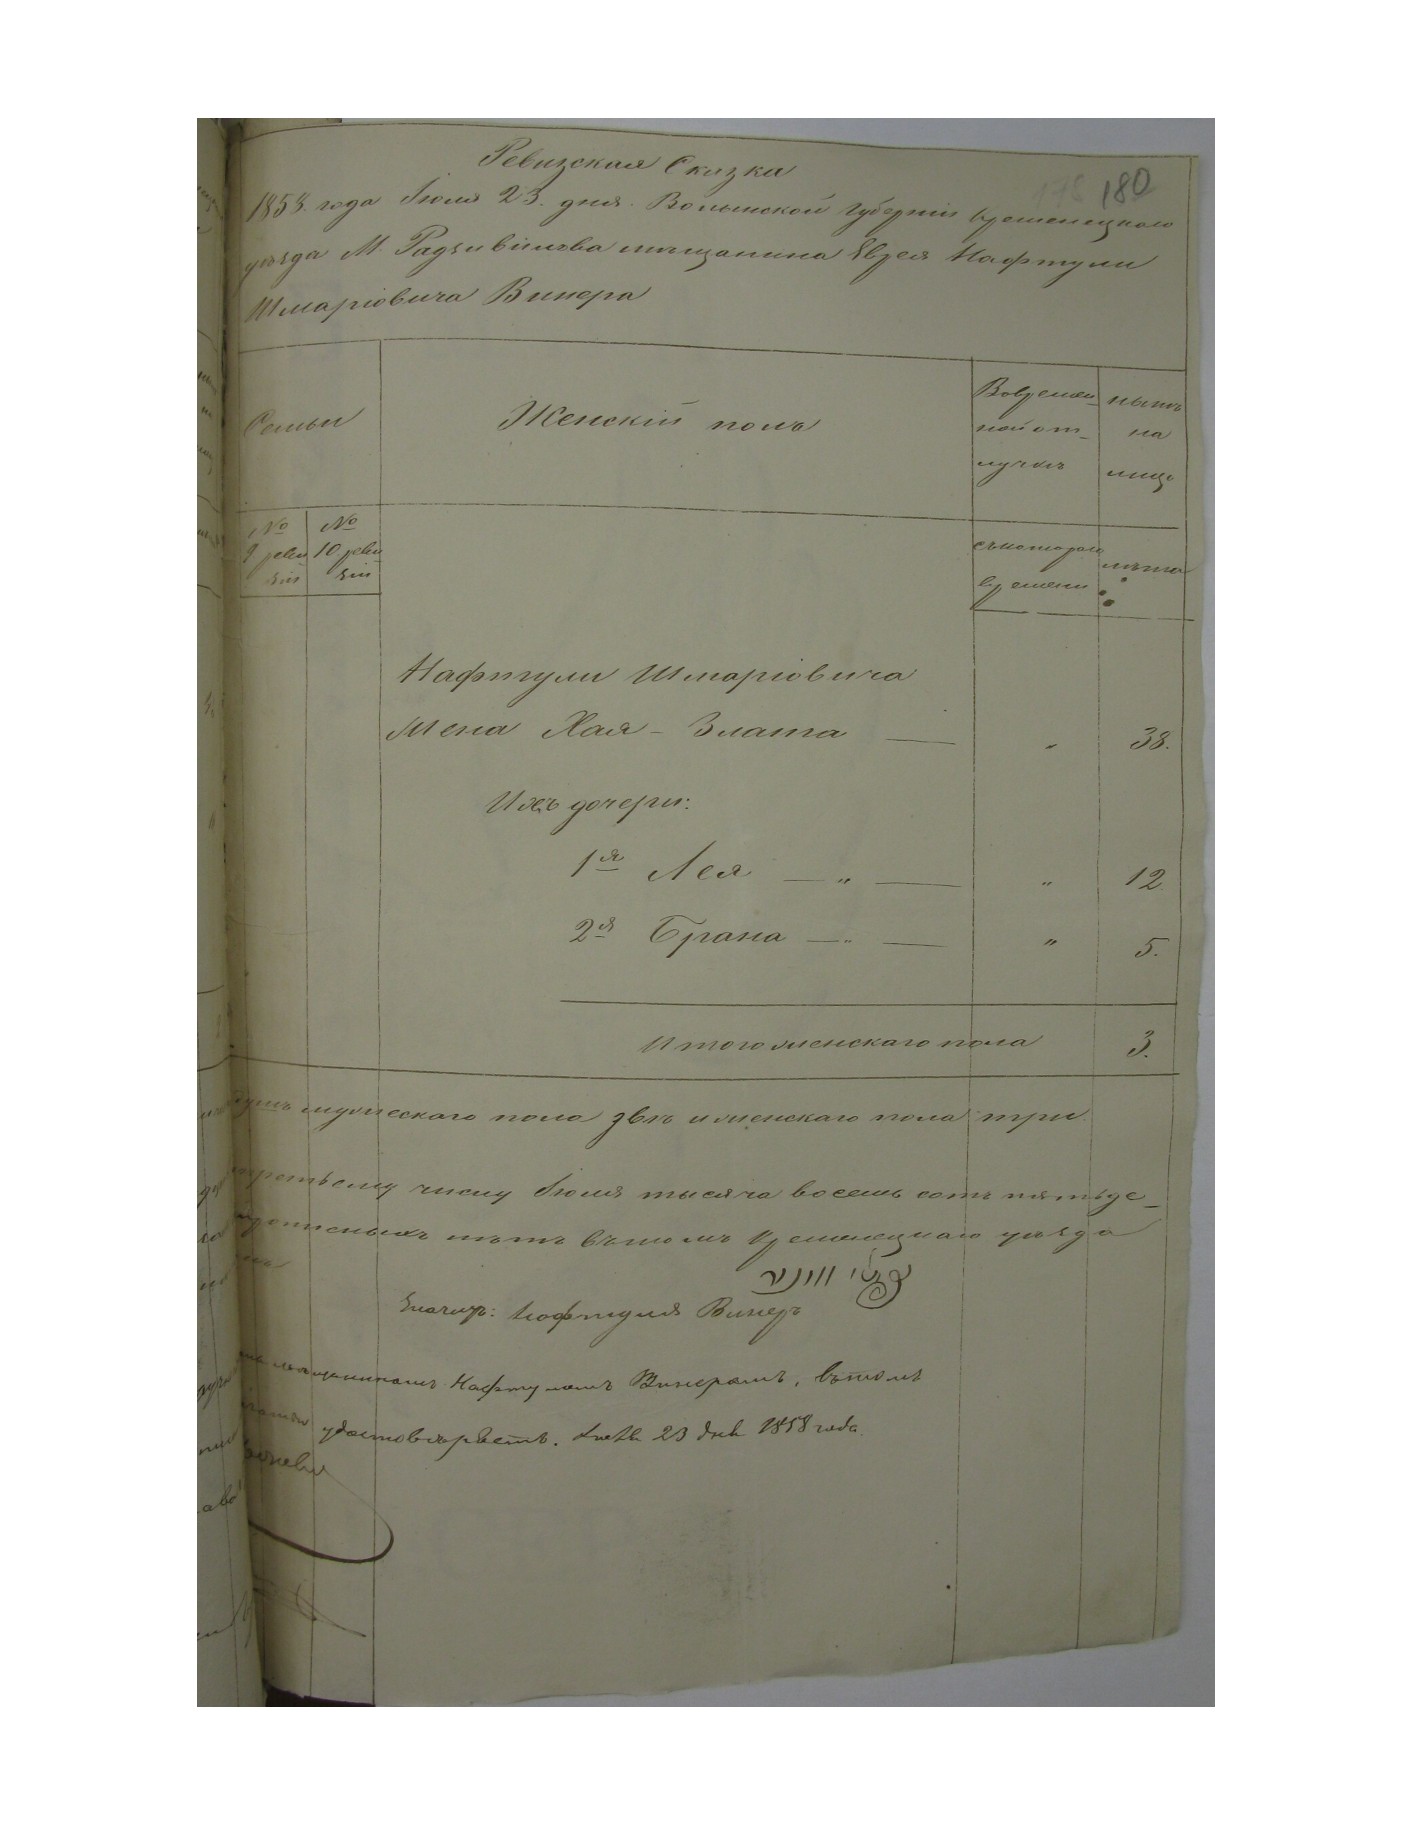 180
Ревизская Сказка
1858. года Іюля 23. дня. Волынской Губерніи Кременецкого
уезда М. Радзивилова мещанина Еврея Нафтули
Шмаріовича Винера
Семьи
Женскій полъ
Вовремен-
ной от-
лучкъ
ныть
на
лицо
№
9. реви
зіи
№
10. реви
зіи
съкотораго
времени
лѣта
Нафтули Шмаріовича
Жена Хая - Злата — " 38.
Ихъ дочери:
1я Лея — " — " 12
2я Брана — " — " 5.
Итого женскаго пола 3.
душъ мужескаго пола двѣ и женскаго пола три
третьему числу Іюля тысяча восемь сотъ пятьде-
лѣтъ въ томъ Кременецкаго уезда
נפתלי ווינער
Значитъ: Нафтуля Винеръ
мещаниномъ Нафтуломъ Винеромъ, въ томъ
удостовѣряетъ. 23 дня 1858 года.